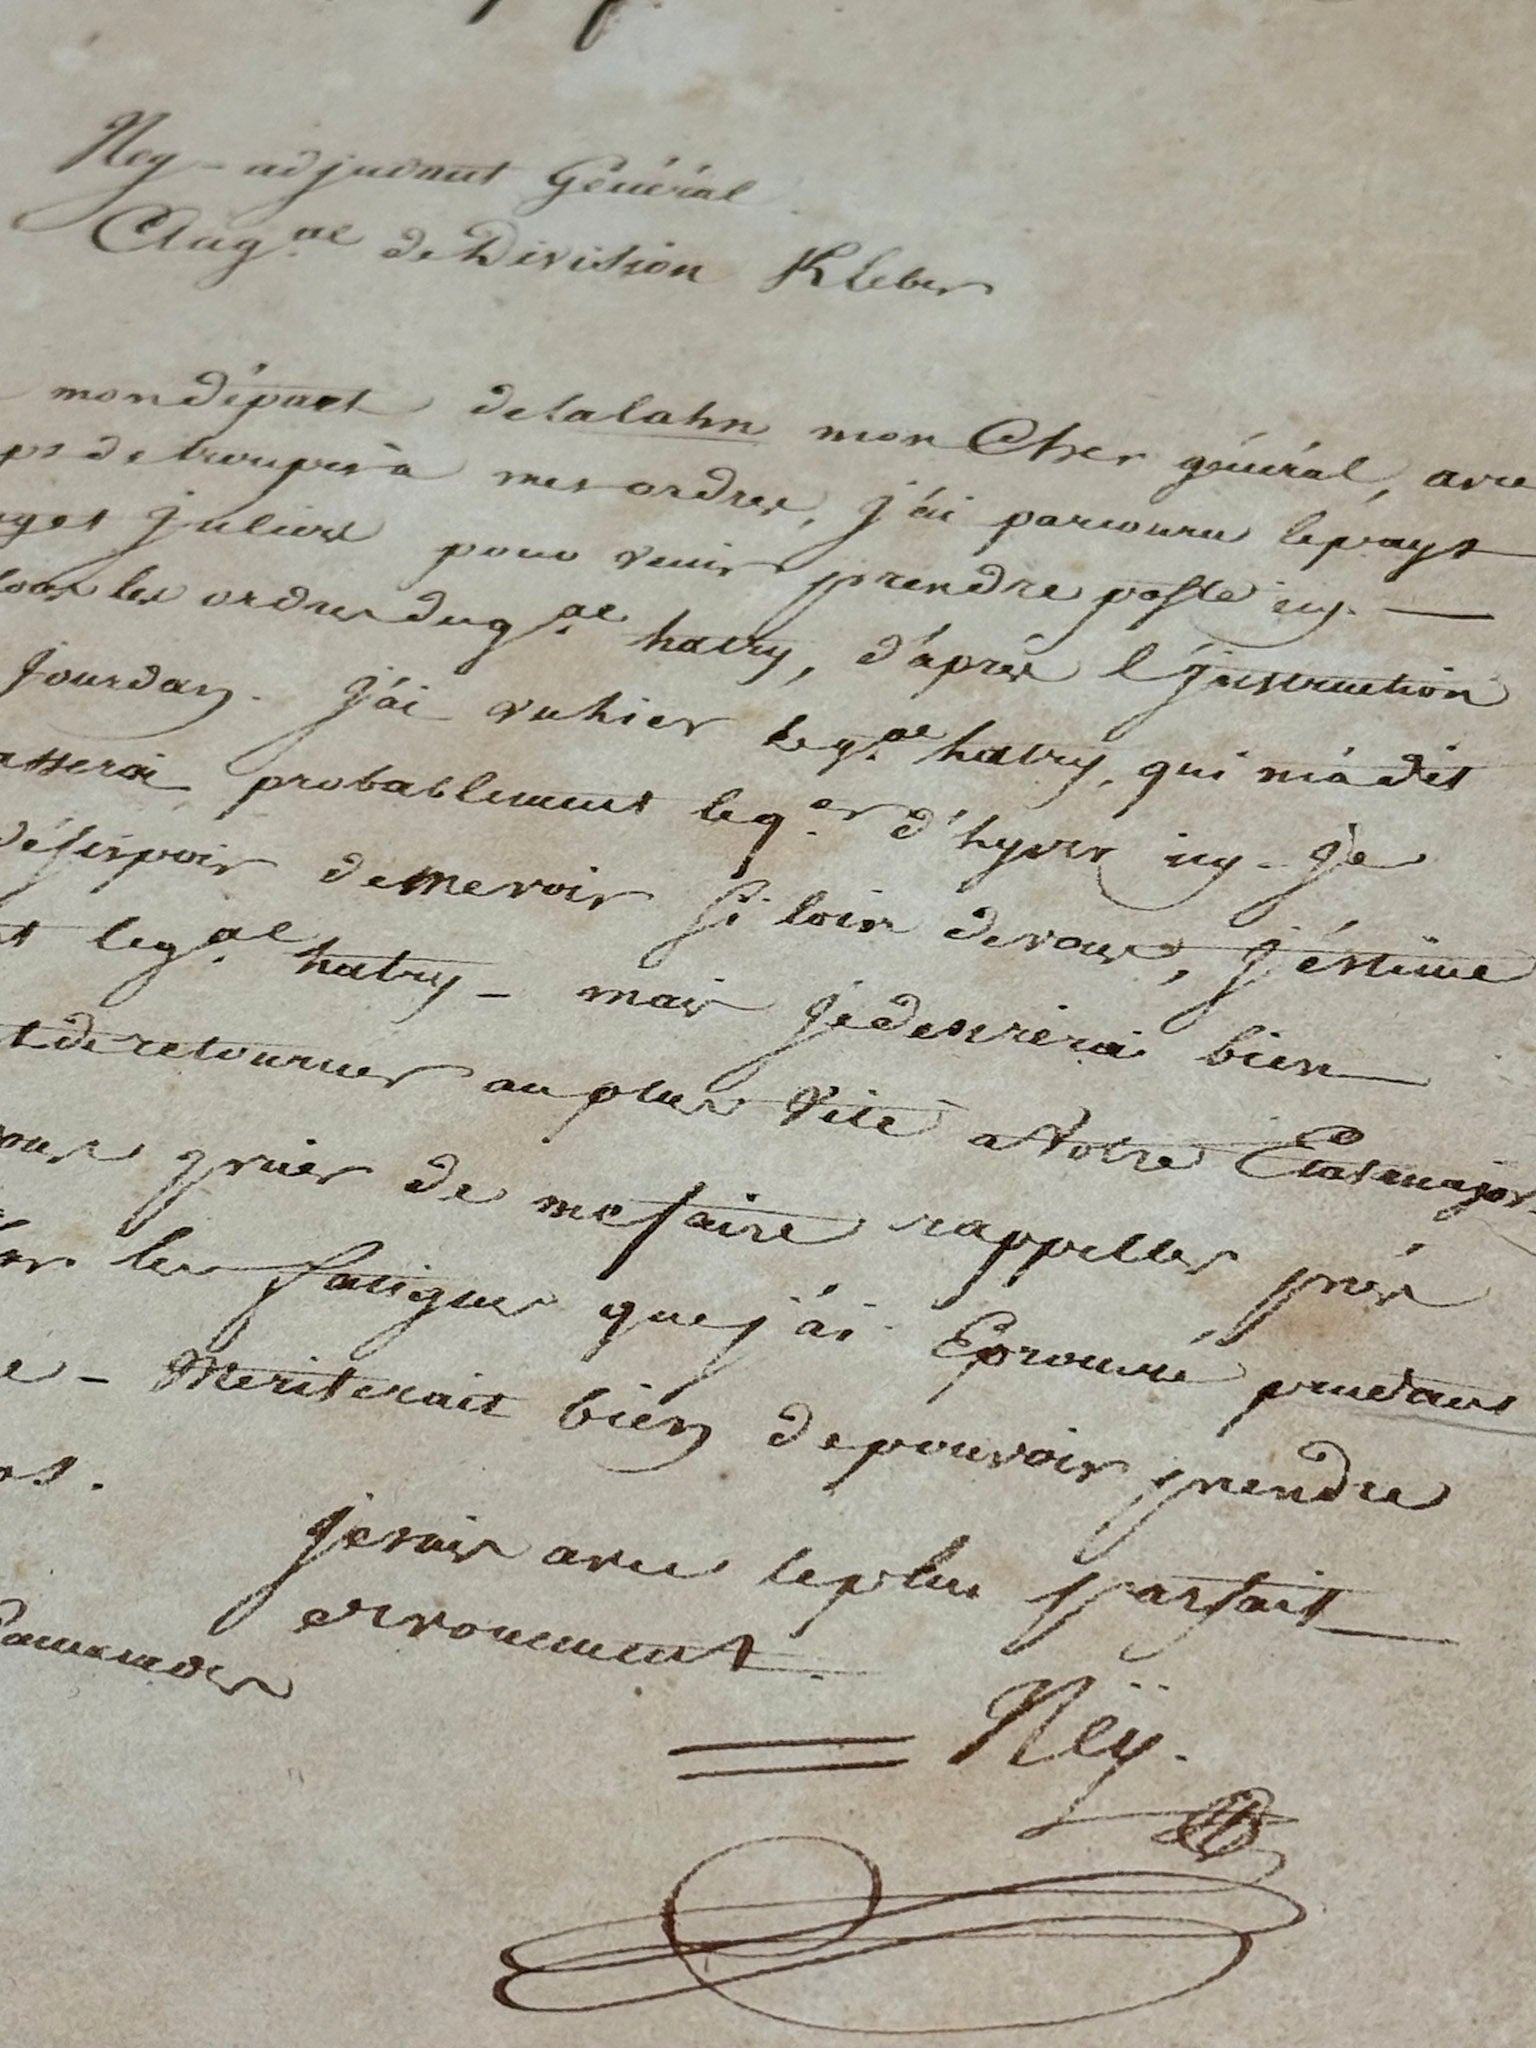 Ney - adjudant Général
Au g.al de Division Kleber
mon départ de la lahn mon Cher général, avec
ps de troupes à mes ordres, j'ai parcouru le pays
juliers pour venir prendre poste icy. —
les ordres du g.al hatry, d'après l'jnstruction
jourdan. j'ai vu hier le g.al hatry, qui m'a dit
asserai probablement le q.er d'hyver icy. Je
désespoir de me voir si loin de vous, j'éstime
t le g.al hatry - mais je desirerai bien
t de retourner au plus Vite à Votre Etatmajor.
vous prier de me faire rappeller près
les fatigues que j'ai Eprouvé pendant
e - Meriterait bien de pouvoir prendre
os.
je suis avec le plus parfait
devouement.
Neÿ.